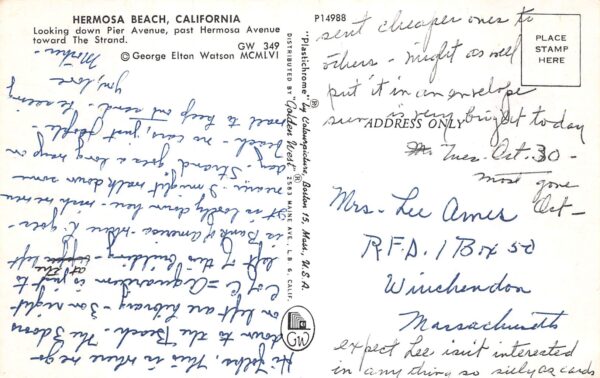 HERMOSA BEACH, CALIFORNIA
Looking down Pier Avenue, past Hermosa Avenue
toward The Strand.
GW 349
© George Elton Watson MCMLVI
Hi folks, This is where we go
down to the "Beach". The 3 doors
on left are library - 3 on right
C of C = Aquarium is just to
left of this building - at the left
is Bank of America - where I go -
lovely down here - wish we were
near - I might walk down some
day - Strand goes a long way on
beach - no cars, just people -
wall to keep out sand - be seeing
you, love
Mother -
"Plastichrome"® by Colourpicture, Boston 15, Mass., U.S.A.
DISTRIBUTED BY "Golden West"® 2583 MAINE AVE., L.B. 6, CALIF.
GW
P14988
PLACE
STAMP
HERE
ADDRESS ONLY
sent cheaper ones to
others - might as well
put it in an envelope
sun is very bright today
Tues. Oct. 30 -
most gone
Oct -
Mrs. Lee Ames
R.F.D. 1 Box 50
Winchendon
Massachusetts
expect Lee isn't interested
in any thing so silly as cards